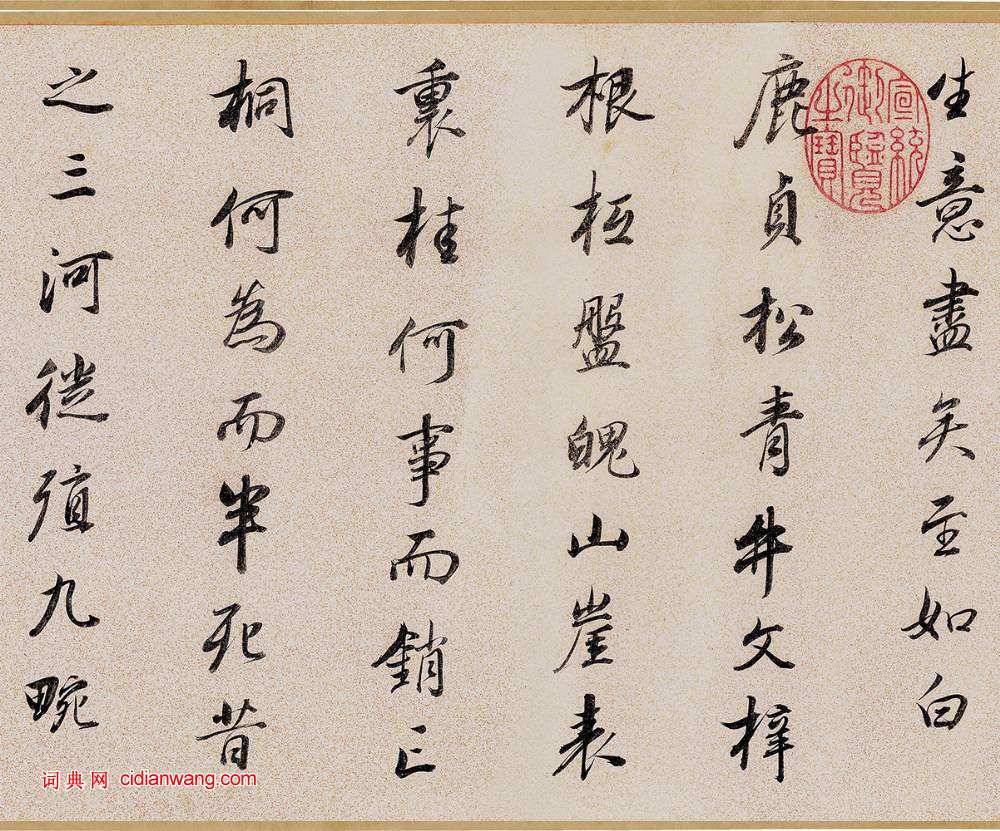 生意盡矣至如白
鹿貞松青牛文梓
根柢盤魄山崖表
裏桂何事而銷亡
桐何為而半死昔
之三河徙殖九畹
宣統御覽之寶
词典网 cidianwang.com